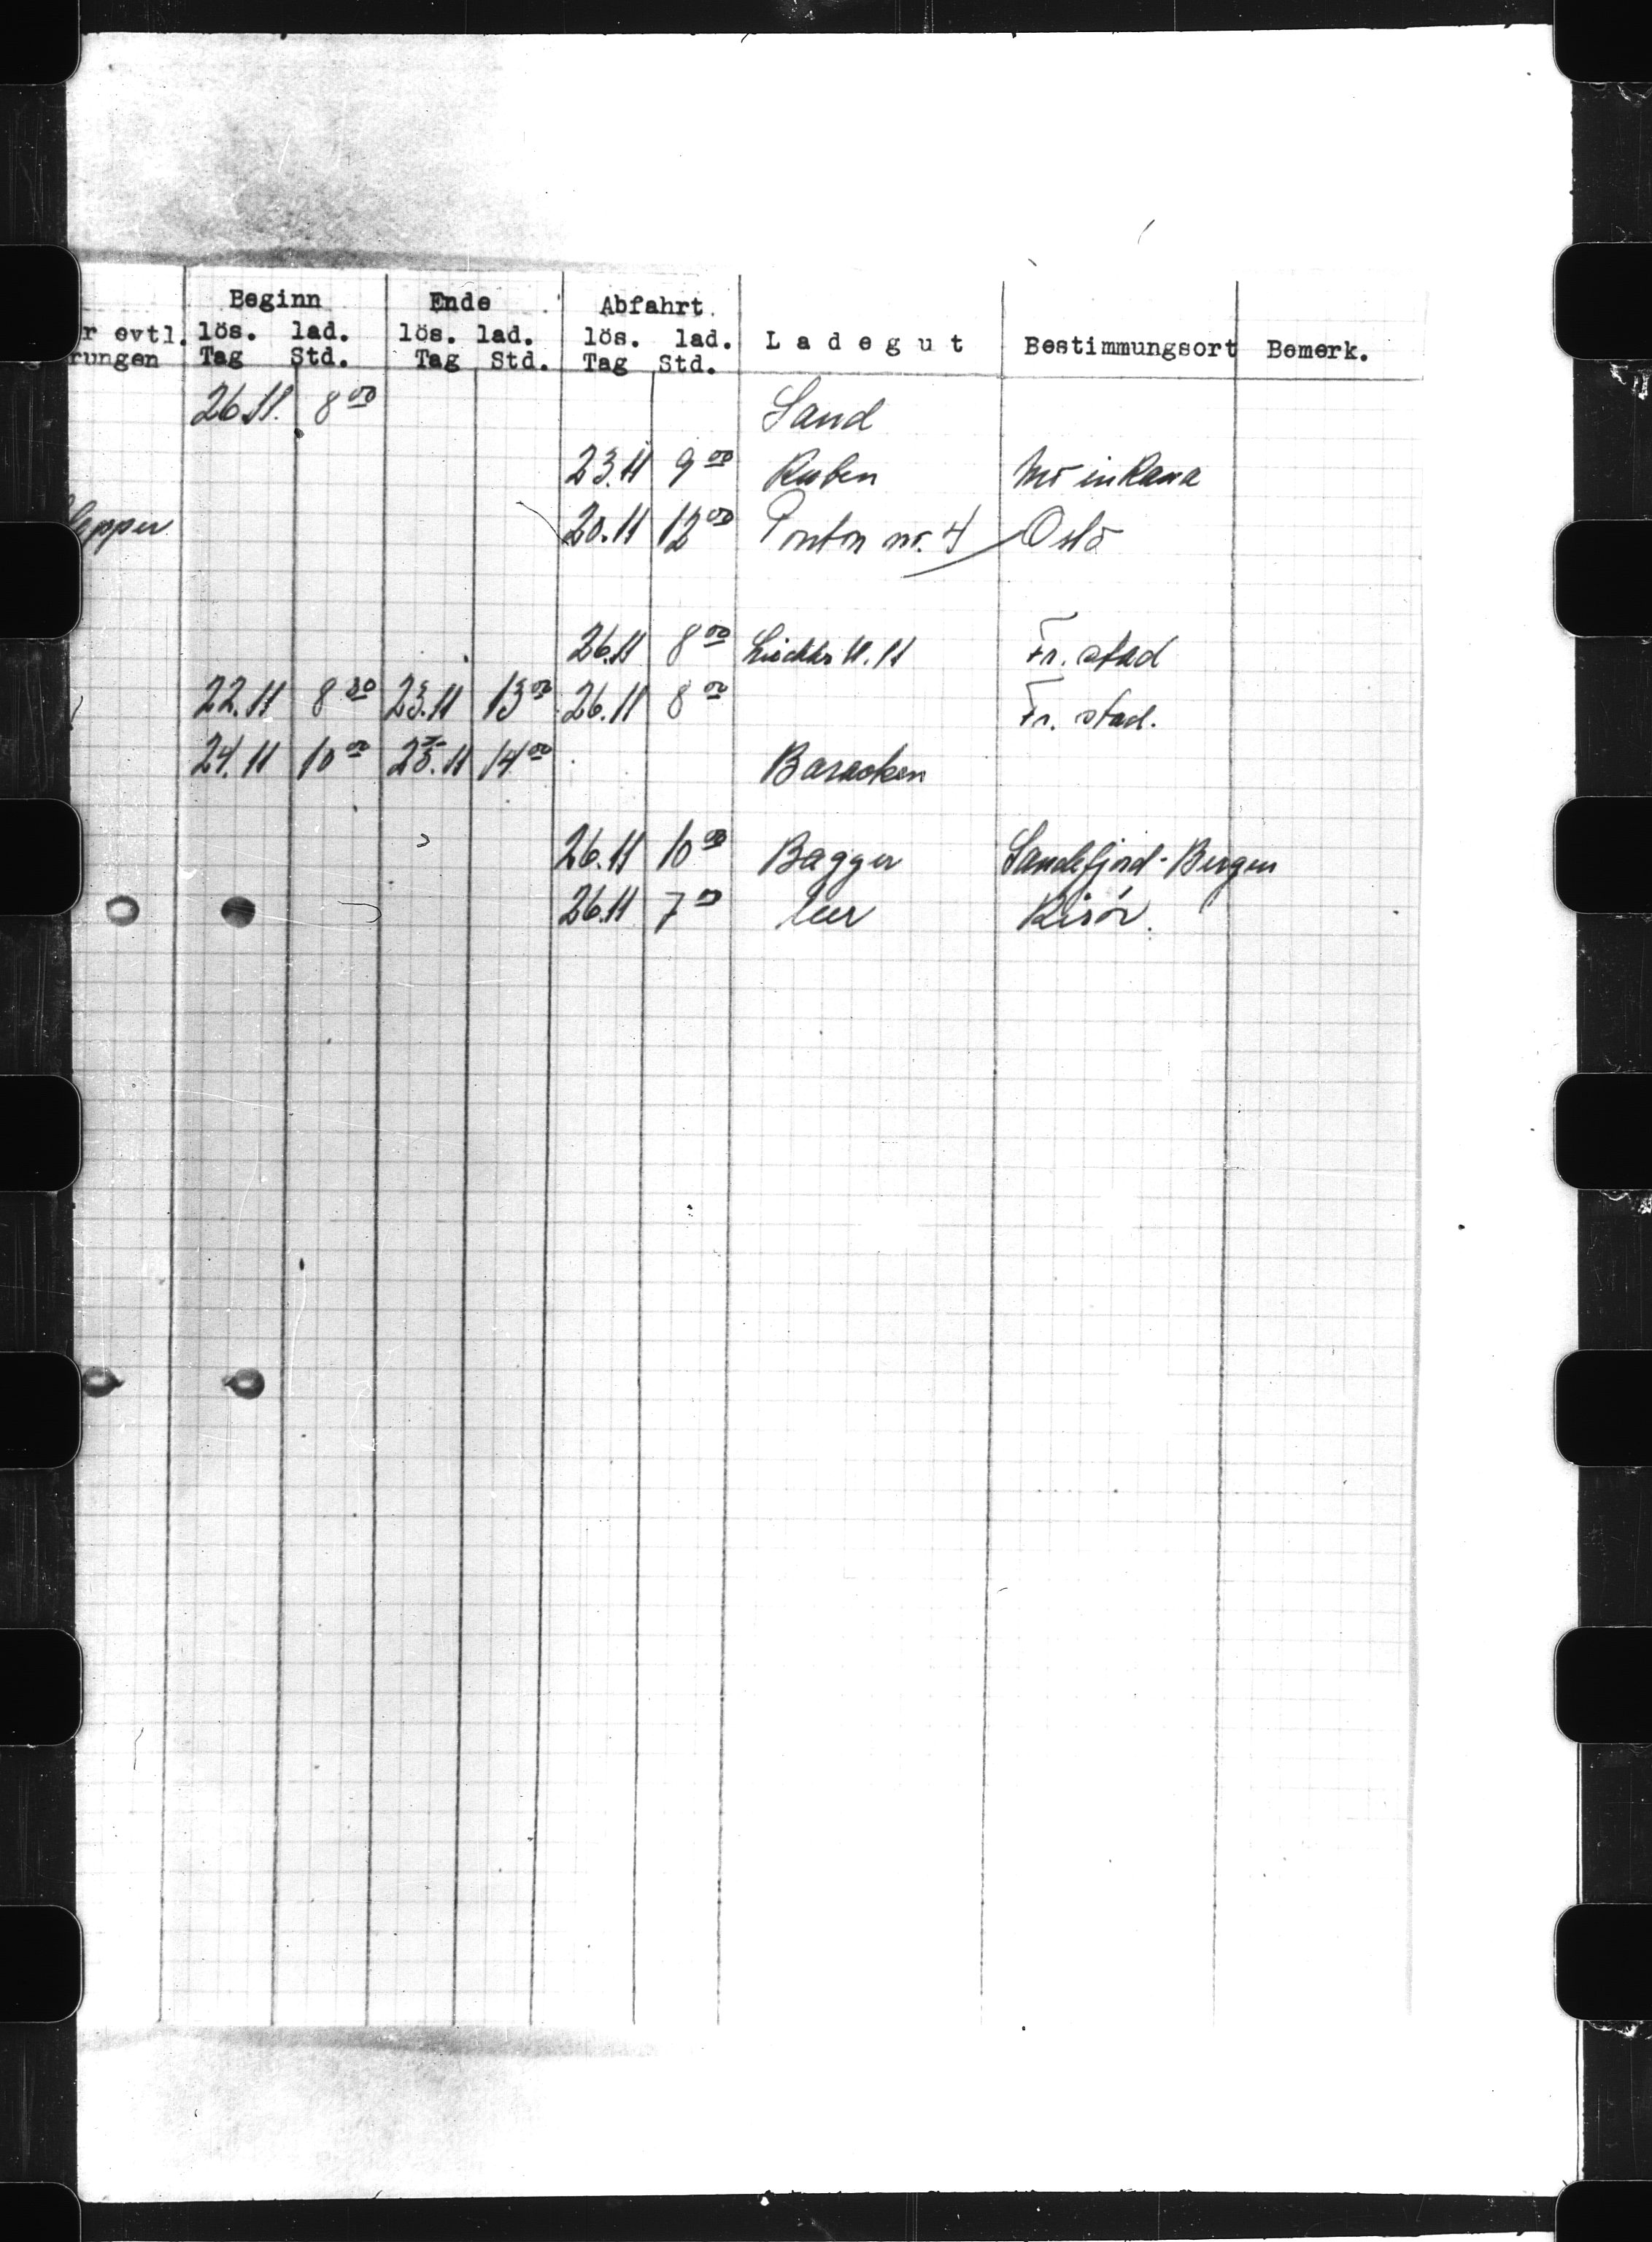 Beginn Ende Abfahrt
r evtl. lös. lad. lös. lad. lös. lad. L a d e g u t Bestimmungsort Bemerk.
rungen Tag Std. Tag Std. Tag Std.
26.11. 8 00 Sand
23.11 9 00 Ruben Mo in Rana
lepper 20.11 12 00 Ponton nr. 4 Oslo
26.11 8 00 11.11 Fr. stad
22.11 8 00 23.11 13 00 26.11 8 00 Fr. stad.
24.11 10 00 25.11 14 00 Baracken
26.11 10 00 Bagger Sandefjord-Bergen
26.11 7 00 leer Risör.